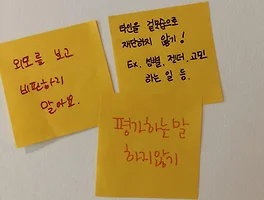 외모를 보고
비판하지
말아요.
타인을 겉모습으로
재단하지 않기!
Ex. 성별, 젠더, 고민
하는 일 등.
평가하는 말
하지않기